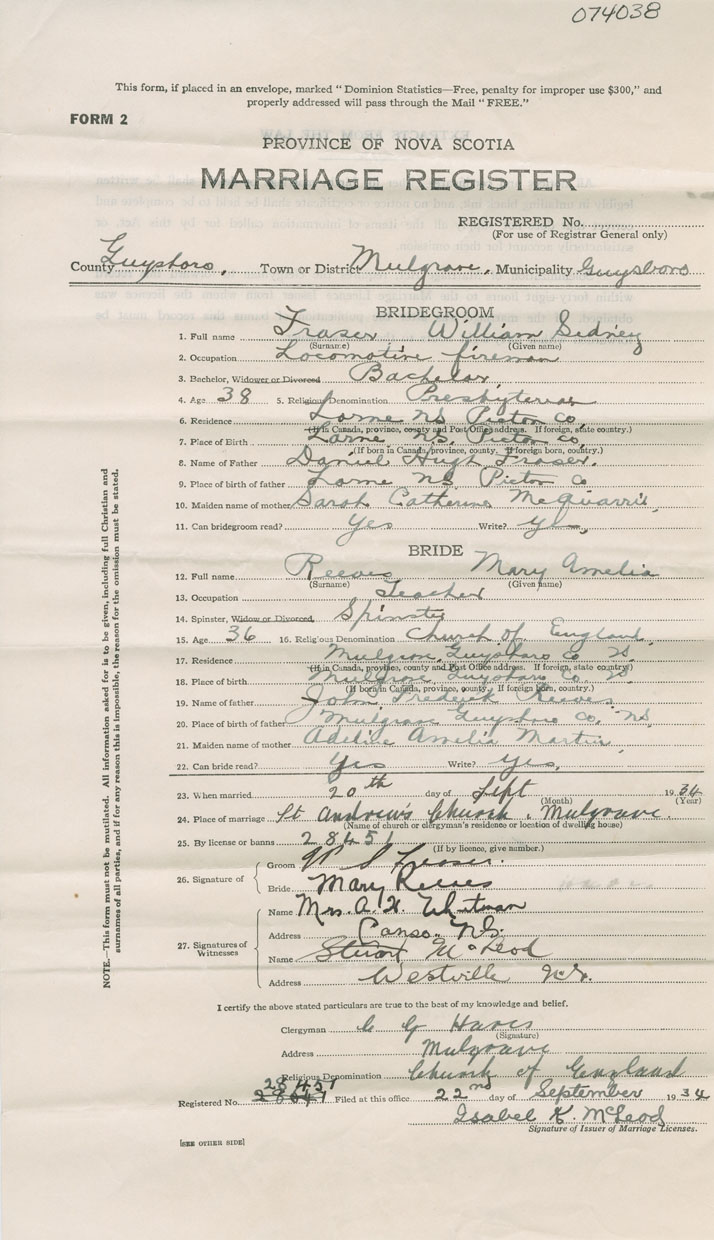 074038
This form, if placed in an envelope, marked "Dominion Statistics—Free, penalty for improper use $300," and
properly addressed will pass through the Mail "FREE."
FORM 2
PROVINCE OF NOVA SCOTIA
MARRIAGE REGISTER
REGISTERED No.
(For use of Registrar General only)
County Guysboro, Town or District Mulgrave, Municipality Guysboro
BRIDEGROOM
1. Full name Fraser William Sidney
(Surname) (Given name)
2. Occupation Locomotive fireman
3. Bachelor, Widower or Divorced Bachelor,
4. Age 38 5. Religious Denomination Presbyterian
6. Residence Lorne NS Pictou Co,
(If in Canada, province, county and Post Office address. If foreign, state country.)
7. Place of Birth Lorne NS, Pictou Co,
(If born in Canada, province, county. If foreign born, country.)
8. Name of Father Daniel Hugh Fraser,
9. Place of birth of father Lorne NS Pictou Co
10. Maiden name of mother Sarah Catherine McQuarrie,
11. Can bridegroom read? Yes Write? yes,
BRIDE
12. Full name Reeves Mary Amelia
(Surname) (Given name)
13. Occupation Teacher
14. Spinster, Widow or Divorced Spinster
15. Age 36 16. Religious Denomination Church of England,
17. Residence Mulgrave, Guysboro Co NS
(If in Canada, province, county and Post Office address. If foreign, state country)
18. Place of birth Mulgrave Guysboro Co NS
(If born in Canada, province, county. If foreign born, country.)
19. Name of father John Frederick Reeves
20. Place of birth of father Mulgrave Guysboro Co, NS
21. Maiden name of mother Adeline Amelia Martin,
22. Can bride read? Yes Write? Yes,
23. When married 20th day of Sept 1934
(Month) (Year)
24. Place of marriage St Andrew's Church, Mulgrave.
(Name of church or clergyman's residence or location of dwelling house)
25. By license or banns 28451
(If by licence, give number.)
26. Signature of
Groom W S Fraser.
Bride Mary Reeves
27. Signatures of Witnesses
Name Mrs. A. H. Whitman
Address Canso. N.S.
Name Stuart McLeod
Address Westville N.S.
NOTE.—This form must not be mutilated. All information asked for is to be given, including full Christian and
surnames of all parties, and if for any reason this is impossible, the reason for the omission must be stated.
I certify the above stated particulars are true to the best of my knowledge and belief.
Clergyman C G
(Signature)
Address Mulgrave
Religious Denomination Church of England
28451
Registered No. Filed at this office 22nd day of September 1934
Isabel K. McLeod
Signature of Issuer of Marriage Licenses.
[SEE OTHER SIDE]